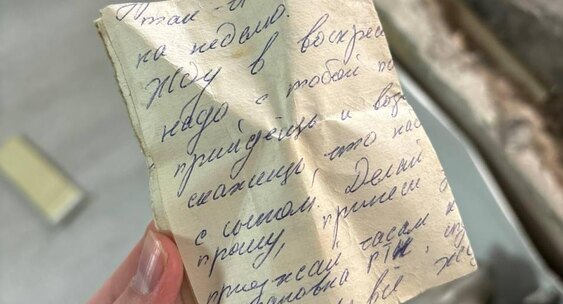 так и
на неделю.
Жду в воскрес
надо с тобой по
прийдёшь и воз
скажешь, что нас
с сыном. Делай
прошу, принеси
приезжай часам к
становка РТК, ну
всё же